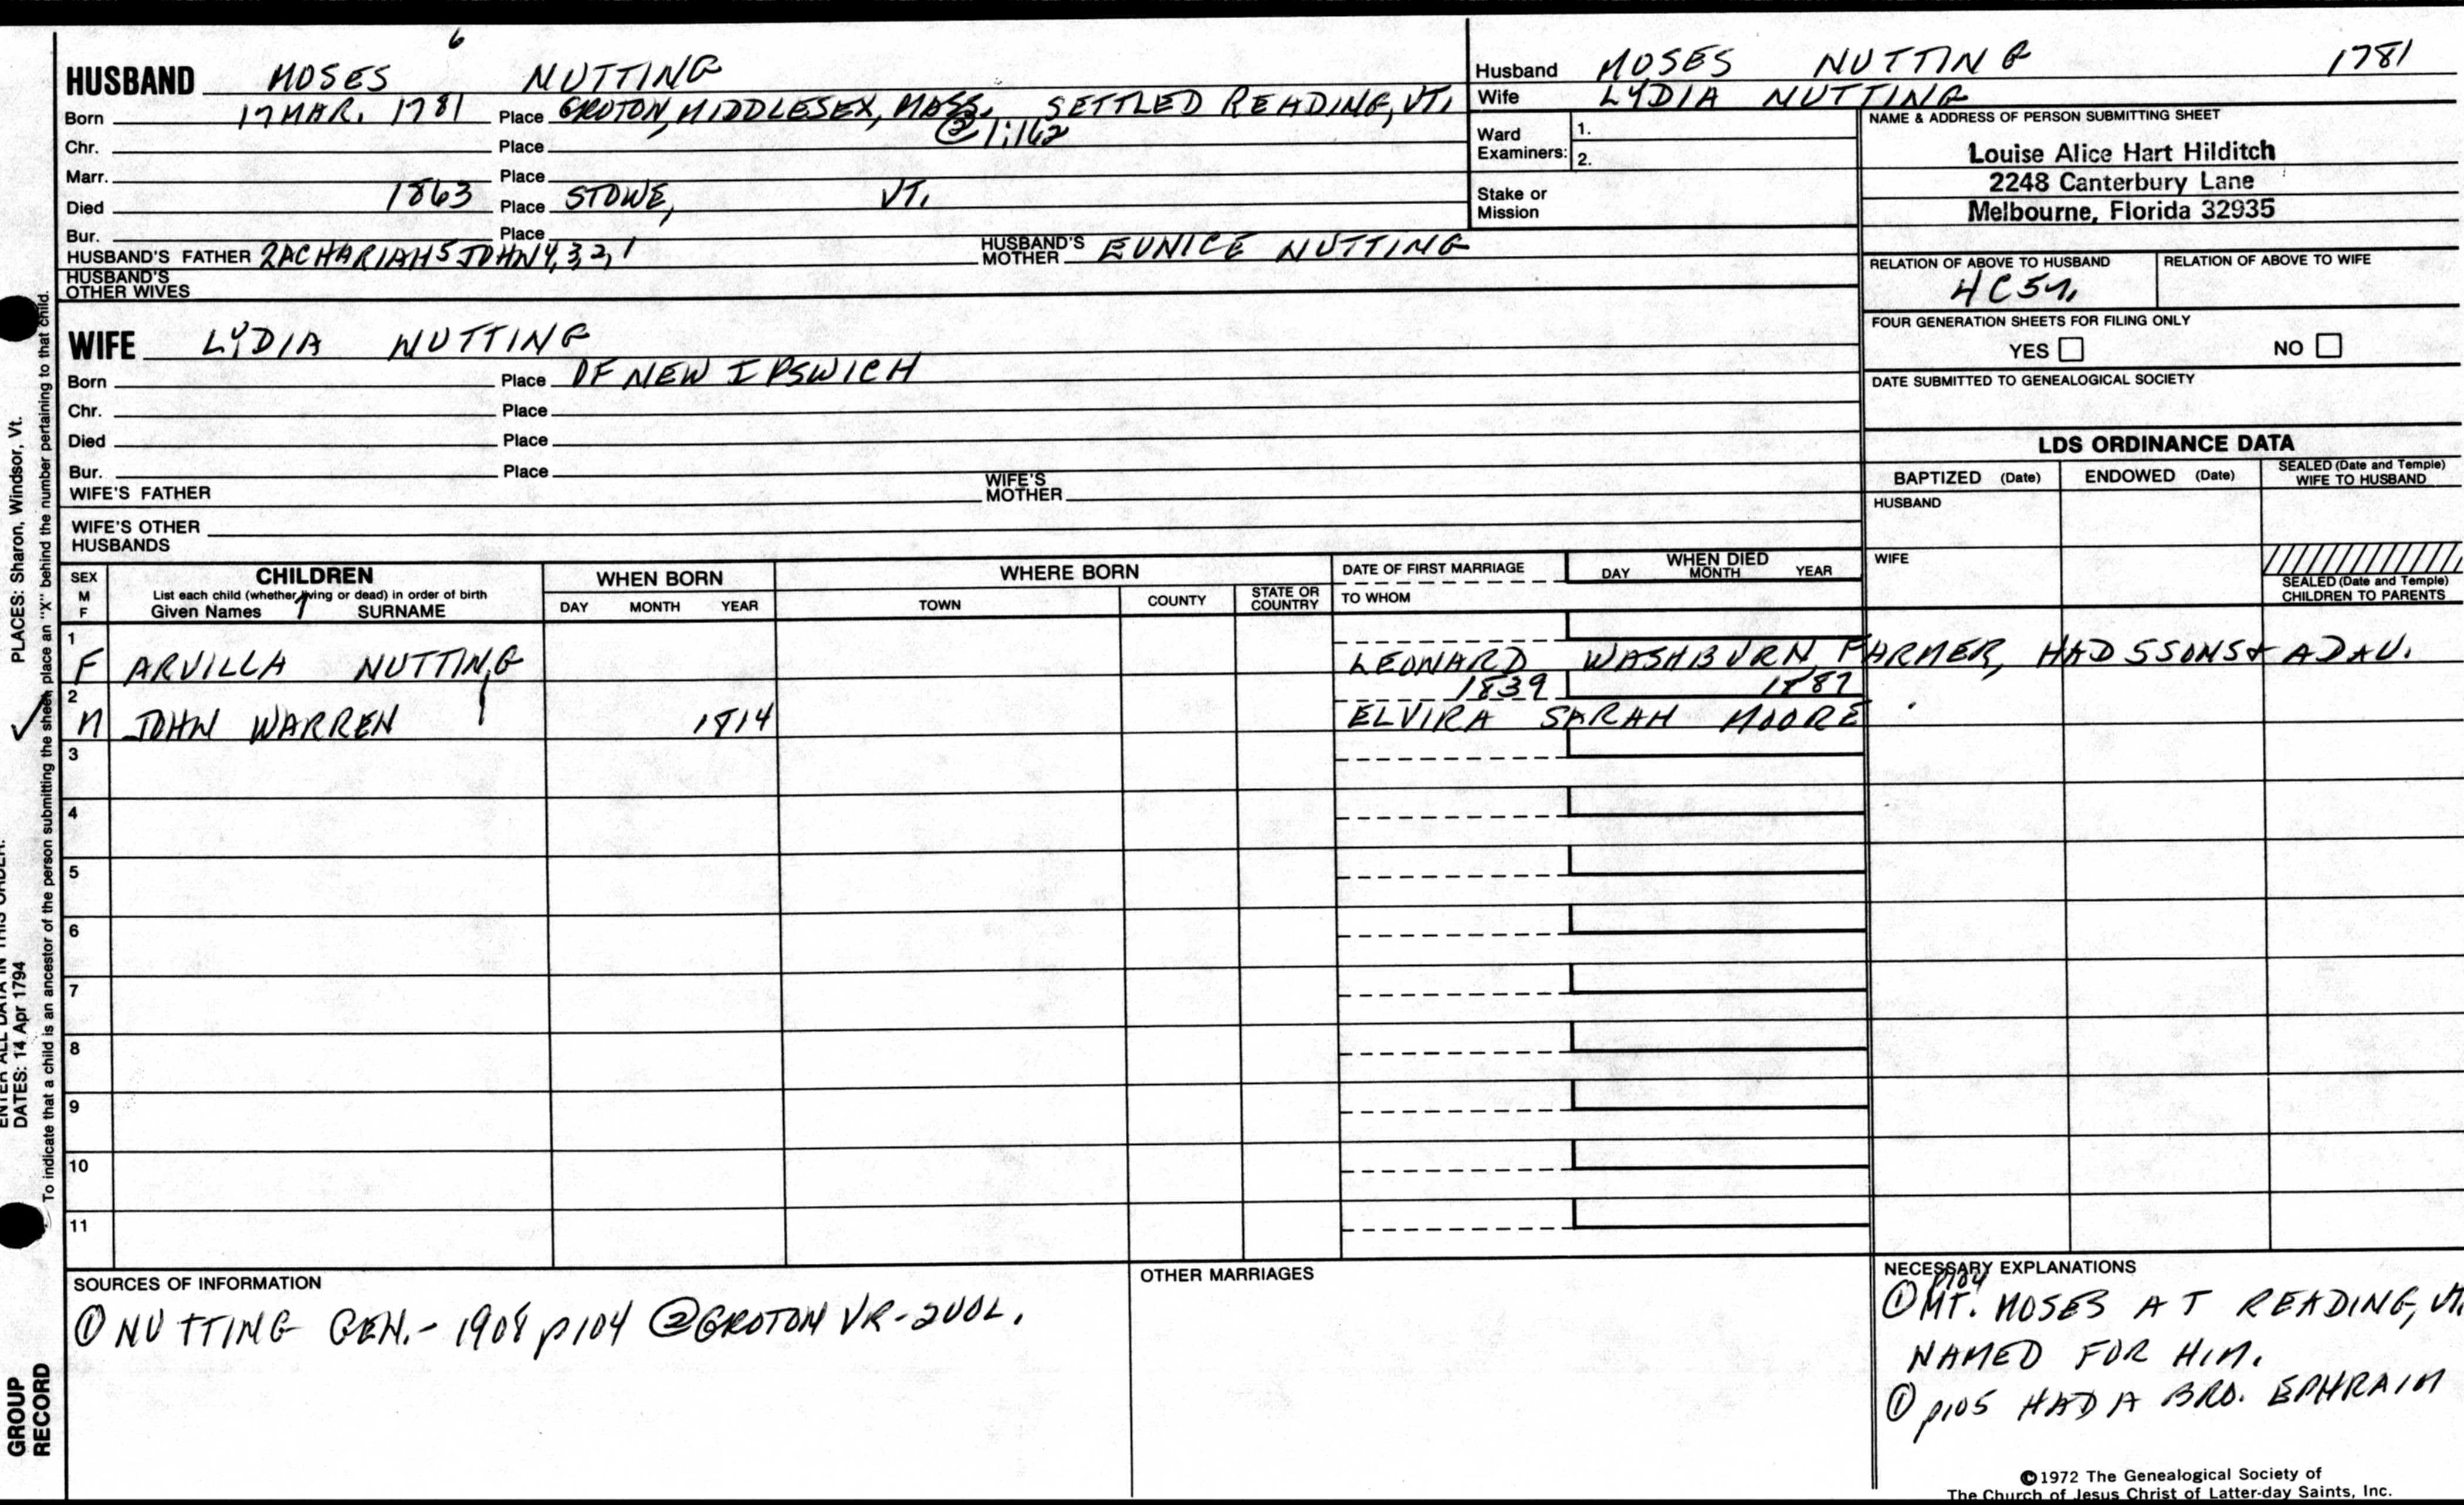 6
HUSBAND MOSES NUTTING
Born 17 MAR. 1781 Place GROTON, MIDDLESEX, MASS. SETTLED READING, VT.
② 1:162
Chr. Place
Marr. Place
Died 1863 Place STOWE, VT.
Bur. Place
HUSBAND'S FATHER ZACHARIAH5 JOHN4,3,2,1 HUSBAND'S MOTHER EUNICE NUTTING
HUSBAND'S
OTHER WIVES
Husband MOSES NUTTING 1781
Wife LYDIA NUTTING
Ward
Examiners: 1.
2.
Stake or
Mission
NAME & ADDRESS OF PERSON SUBMITTING SHEET
Louise Alice Hart Hilditch
2248 Canterbury Lane
Melbourne, Florida 32935
RELATION OF ABOVE TO HUSBAND RELATION OF ABOVE TO WIFE
4C5
FOUR GENERATION SHEETS FOR FILING ONLY
YES NO
DATE SUBMITTED TO GENEALOGICAL SOCIETY
WIFE LYDIA NUTTING
Born Place OF NEW IPSWICH
Chr. Place
Died Place
Bur. Place
WIFE'S FATHER WIFE'S MOTHER
WIFE'S OTHER
HUSBANDS
LDS ORDINANCE DATA
BAPTIZED (Date) ENDOWED (Date) SEALED (Date and Temple) WIFE TO HUSBAND
HUSBAND
WIFE
SEALED (Date and Temple)
CHILDREN TO PARENTS
SEX
M
F
CHILDREN
List each child (whether living or dead) in order of birth
Given Names SURNAME
WHEN BORN
DAY MONTH YEAR
WHERE BORN
TOWN COUNTY STATE OR COUNTRY
DATE OF FIRST MARRIAGE
TO WHOM
WHEN DIED
DAY MONTH YEAR
1
F ARVILLA NUTTING LEONARD WASHBURN, FARMER, HAD 5 SONS & A DAU.
2 1839 1887
M JOHN WARREN 1814 ELVIRA SARAH MOORE
3
4
5
6
7
8
9
10
11
SOURCES OF INFORMATION
① NUTTING GEN.- 1908 p104 ② GROTON VR-2VOL.
OTHER MARRIAGES
NECESSARY EXPLANATIONS
p104
① MT. MOSES AT READING, VT.
NAMED FOR HIM.
① p105 HAD A BRO. EPHRAIM
©1972 The Genealogical Society of
The Church of Jesus Christ of Latter-day Saints, Inc.
PLACES: Sharon, Windsor, Vt.
To indicate that a child is an ancestor of the person submitting the sheet, place an "X" behind the number pertaining to that child.
ENTER ALL DATA IN THIS ORDER:
DATES: 14 Apr 1794
GROUP
RECORD